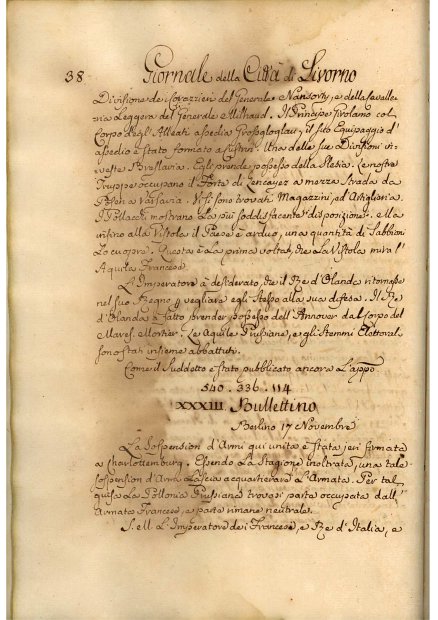 38 Giornale della Città di Livorno
Divisione dei Corazzieri del Generale Nansouty, e della Cavalle
ria Leggera del Generale Milhaud. Il Principe Girolamo col
Corpo degl' Alleati assedia Grossglogau, il suo Equipaggio d'
assedio è stato formato a Custrin. Una delle sue Divisioni in
veste Breslavia. Egli prende possesso della Slesia. Le nostre
Truppe occupano il Forte di Lenczyez a mezza strada da
Posen a Varsavia. Vi si sono trovati Magazzini, ed Artiglieria.
I Pollacchi mostrano la più soddisfacente disposizione. Ma
vicino alla Vistola il Paese è arduo, una quantità di Sabbion
Lo cuopre. Questa è la prima volta, che la Vistola mira l'
Aquila Francese.
L'Imperatore à desiderato, che il Rè d'Olanda ritornasse
nel suo Regno p vegliare egli stesso alla sua difesa. Il Rè
d'Olanda à fatto prender possesso dell'Annover dal Corpo del
Maresc. Mortier. Le Aquile Prussiane, e gli Stemmi Elettoral
sono stati insieme abbattuti.
Come il Suddetto è stato pubblicato ancora l'appo.
540. 336. 114
XXXIII. Bullettino
Berlino 17 Novembre
La Sospension d'Armi qui unita è stata jeri firmata
a Charlottemburg. Essendo la Stagione inoltrata, una tale
sospension d'Armi lascia acquartierare l'Armata. Per tal
guisa la Pollonia Prussiana trovasi parte occupata dall'
Armata Francese, e parte rimane neutrale.
S. M. L'Imperatore dei Francesi, e Rè d'Italia, e